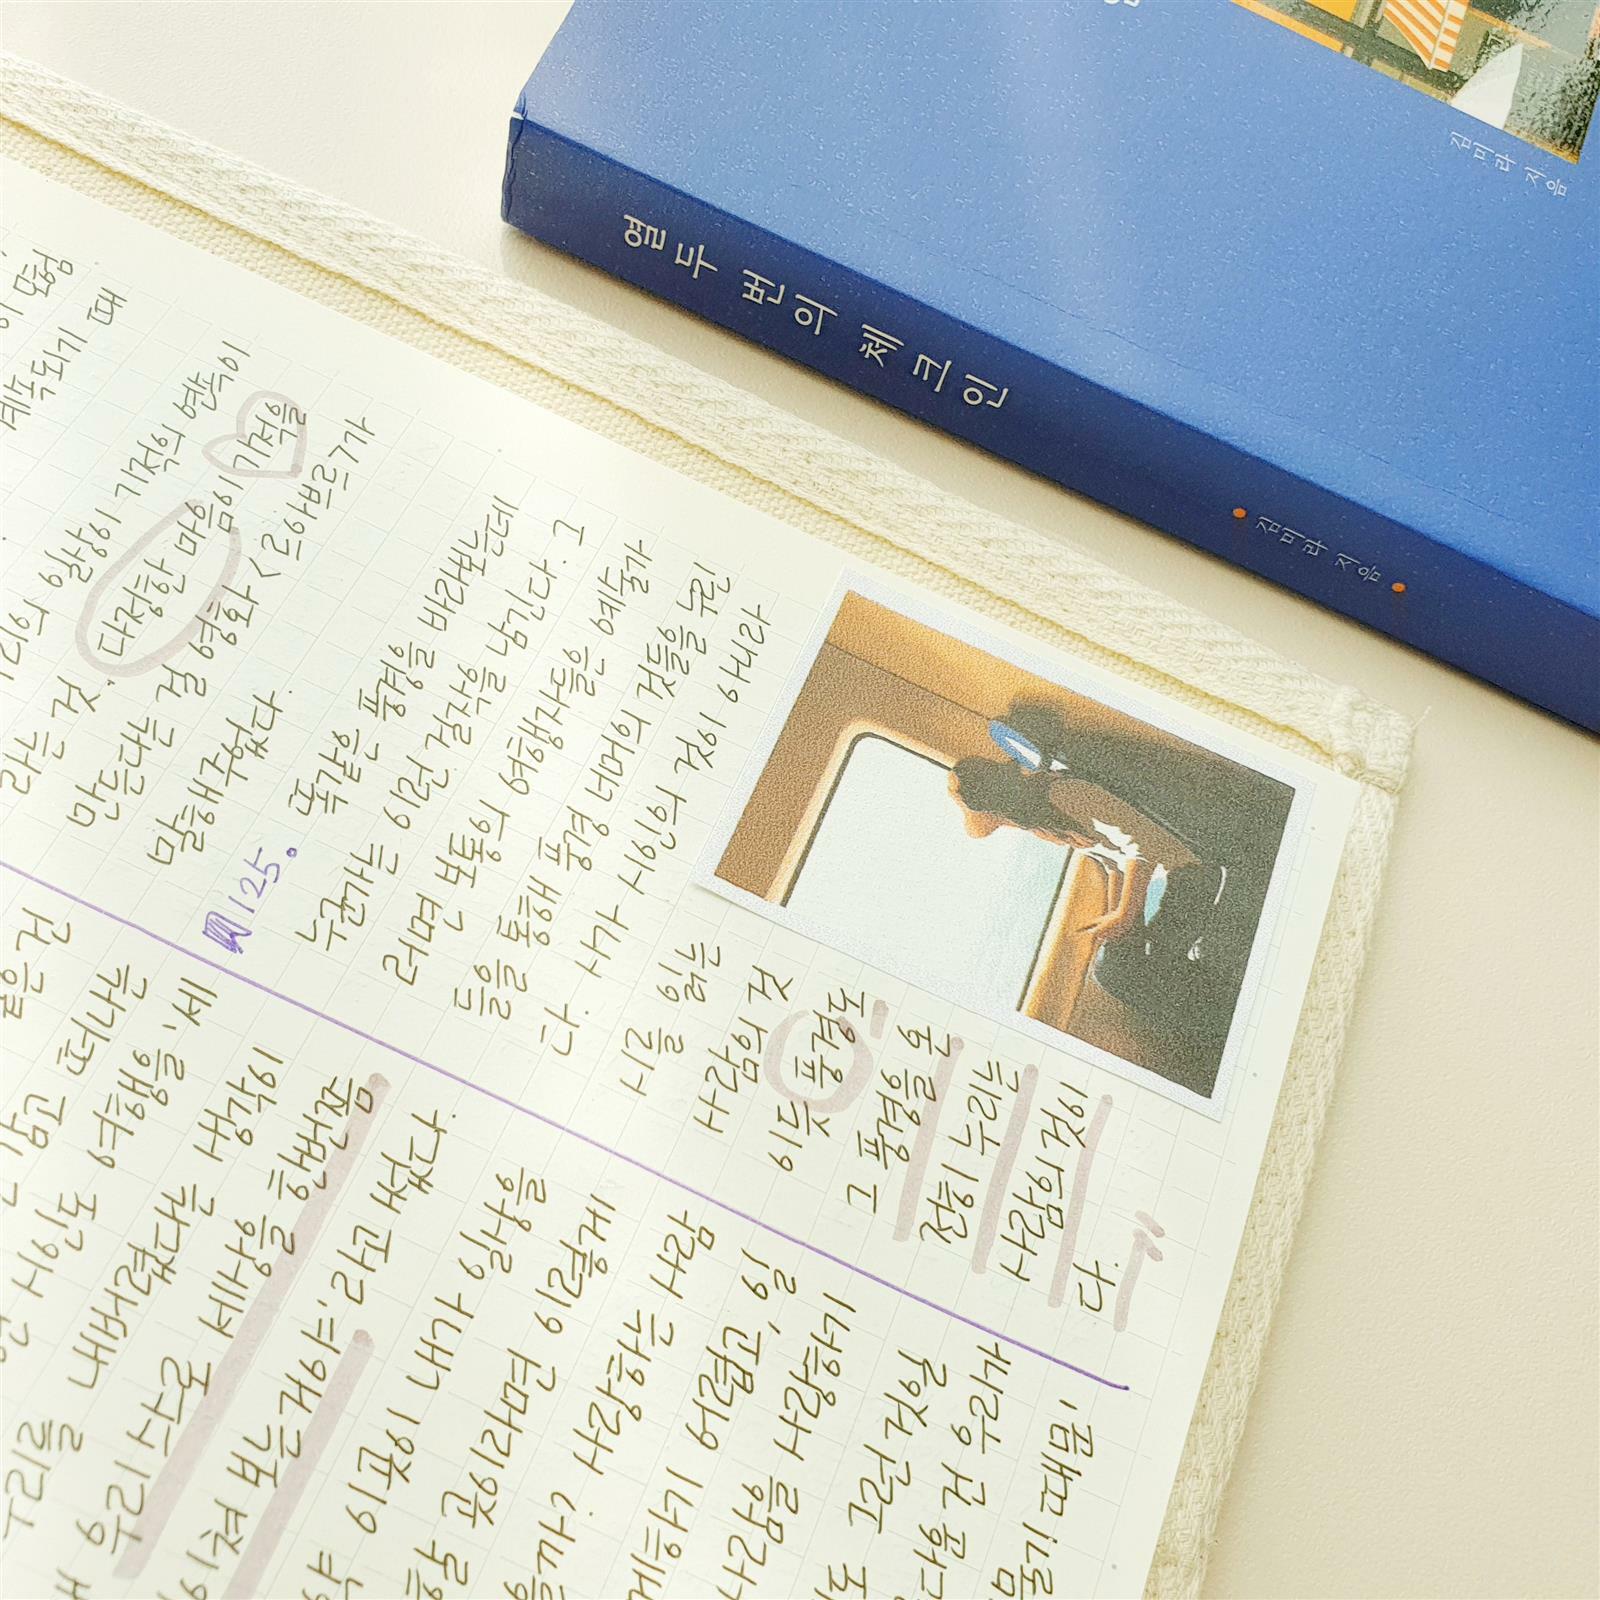 열두 번의 체크인
김미라 지음
김미라 지음
예측되기 때
일상이 기적의 연속이
라는 것. 다정한 마음이 기적을
만든다는 걸 영화 <르아브르>가
말해주었다.
125. 똑같은 풍경을 바라보는데
누군가는 이런 걸작을 남긴다. 그
러면 보통의 여행자들은 예술가
들을 통해 풍경 너머의 것들을 누린
다. 시가 시인의 것이 아니라
시를 읽는
사람의 것
이듯 풍경도
그 풍경을 온
전히 누리는
사람의 것이
다.
같은 건
남고 떠나는
시인도 여행을 '세
우리를 내버렸다는 생각이
우리 스스로 세상을 한번쯤
보는거야'라고 썼다.
이곳이 내가 일상을
곳이라면 이렇게
을까? 사랑하는 사람
께하기 어렵고, 일
사람을 사랑하기
도 그런 것일
다운 건 우리가
물기 때문'